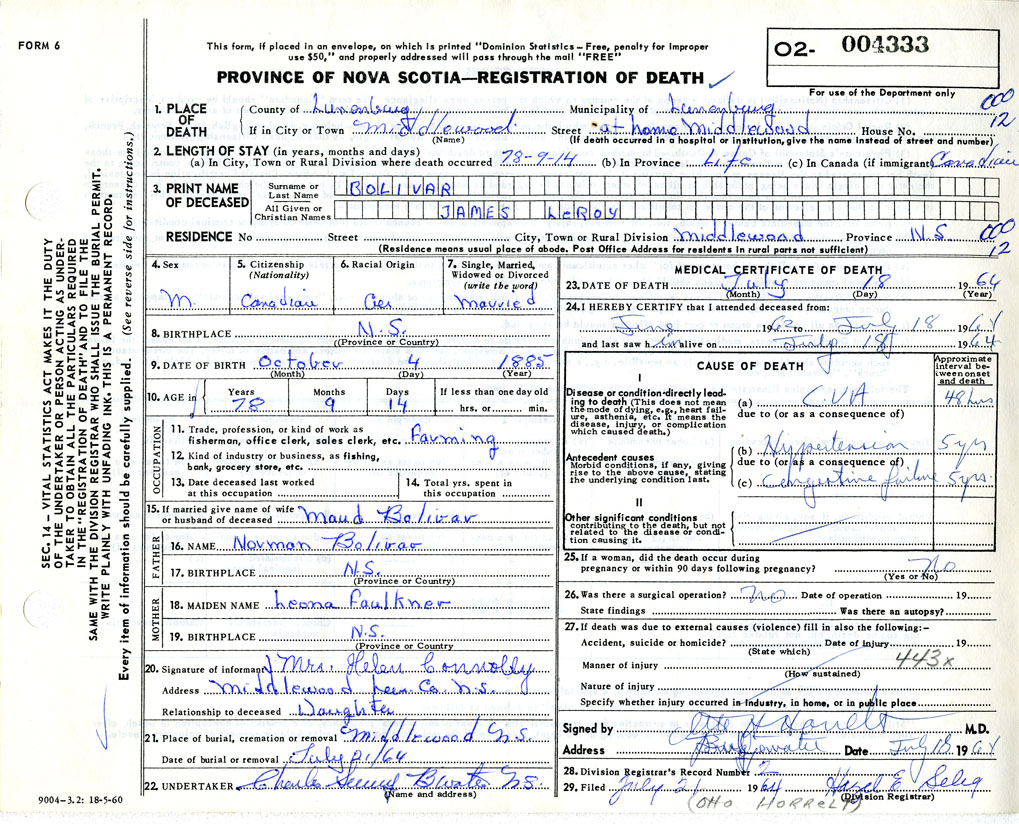 FORM 6
This form, if placed in an envelope, on which is printed "Dominion Statistics – Free, penalty for improper
use $50," and properly addressed will pass through the mail "FREE"
PROVINCE OF NOVA SCOTIA—REGISTRATION OF DEATH
02- 004333
For use of the Department only
000
12
1. PLACE OF DEATH
County of Lunenburg Municipality of Lunenburg
If in City or Town Middlewood Street at home Middlewood House No.
(Name) (If death occurred in a hospital or institution, give the name instead of street and number)
2. LENGTH OF STAY (in years, months and days)
(a) In City, Town or Rural Division where death occurred 78-9-14 (b) In Province Life (c) In Canada (if immigrant) Canadian
3. PRINT NAME OF DECEASED
Surname or Last Name BOLIVAR
All Given or Christian Names JAMES LeROY
RESIDENCE No Street City, Town or Rural Division Middlewood Province N.S
000
12
(Residence means usual place of abode. Post Office Address for residents in rural parts not sufficient)
4. Sex M.
5. Citizenship (Nationality) Canadian
6. Racial Origin
7. Single, Married, Widowed or Divorced (write the word) Married
8. BIRTHPLACE N.S.
(Province or Country)
9. DATE OF BIRTH October 4 1885
(Month) (Day) (Year)
10. AGE in Years 78 Months 9 Days 14 If less than one day old hrs. or min.
OCCUPATION
11. Trade, profession, or kind of work as
fisherman, office clerk, sales clerk, etc. Farming
12. Kind of industry or business, as fishing,
bank, grocery store, etc.
13. Date deceased last worked
at this occupation
14. Total yrs. spent in
this occupation
15. If married give name of wife
or husband of deceased Maud Bolivar
FATHER
16. NAME Norman Bolivar
17. BIRTHPLACE N.S.
(Province or Country)
MOTHER
18. MAIDEN NAME Leona Faulkner
19. BIRTHPLACE N.S.
(Province or Country
20. Signature of informant Mrs. Helen Connolly
Address Middlewood Lun. Co. N.S.
Relationship to deceased Daughter
21. Place of burial, cremation or removal Middlewood N.S.
Date of burial or removal July 21/64
22. UNDERTAKER Charles B'water N.S.
(Name and address)
9004–3.2: 18-5-60
MEDICAL CERTIFICATE OF DEATH
23. DATE OF DEATH July 18 1964
(Month) (Day) (Year)
24. I HEREBY CERTIFY that I attended deceased from:
June 1962 to July 18 1964
and last saw him alive on July 18 1964
CAUSE OF DEATH
Approximate interval between onset and death
I
Disease or condition directly leading to death (This does not mean the mode of dying, e.g., heart failure, asthenia, etc. It means the disease, injury, or complication which caused death.)
(a) C.V.A 48 hrs
due to (or as a consequence of)
Antecedent causes
Morbid conditions, if any, giving rise to the above cause, stating the underlying condition last.
(b) Hypertension 5 yrs
due to (or as a consequence of)
(c) Congestive failure 5 yrs.
II
Other significant conditions
contributing to the death, but not related to the disease or condition causing it.
25. If a woman, did the death occur during
pregnancy or within 90 days following pregnancy? No
(Yes or No)
26. Was there a surgical operation? No Date of operation 19
State findings Was there an autopsy?
27. If death was due to external causes (violence) fill in also the following:–
Accident, suicide or homicide? Date of injury 19
(State which)
443x
Manner of injury
(How sustained)
Nature of injury
Specify whether injury occurred in industry, in home, or in public place
Signed by M.D.
Address Bridgewater Date July 18 1964
28. Division Registrar's Record Number 2
29. Filed July 21 1964 Hazel E Selig
(Division Registrar)
(OTTO HORRELT)
SEC. 14 – VITAL STATISTICS ACT MAKES IT THE DUTY
OF THE UNDERTAKER OR PERSON ACTING AS UNDER-
TAKER TO OBTAIN ALL THE PARTICULARS REQUIRED
IN THE "REGISTRATION OF DEATH" AND TO FILE THE
SAME WITH THE DIVISION REGISTRAR WHO SHALL ISSUE THE BURIAL PERMIT.
WRITE PLAINLY WITH UNFADING INK. THIS IS A PERMANENT RECORD.
Every item of information should be carefully supplied. (See reverse side for instructions.)